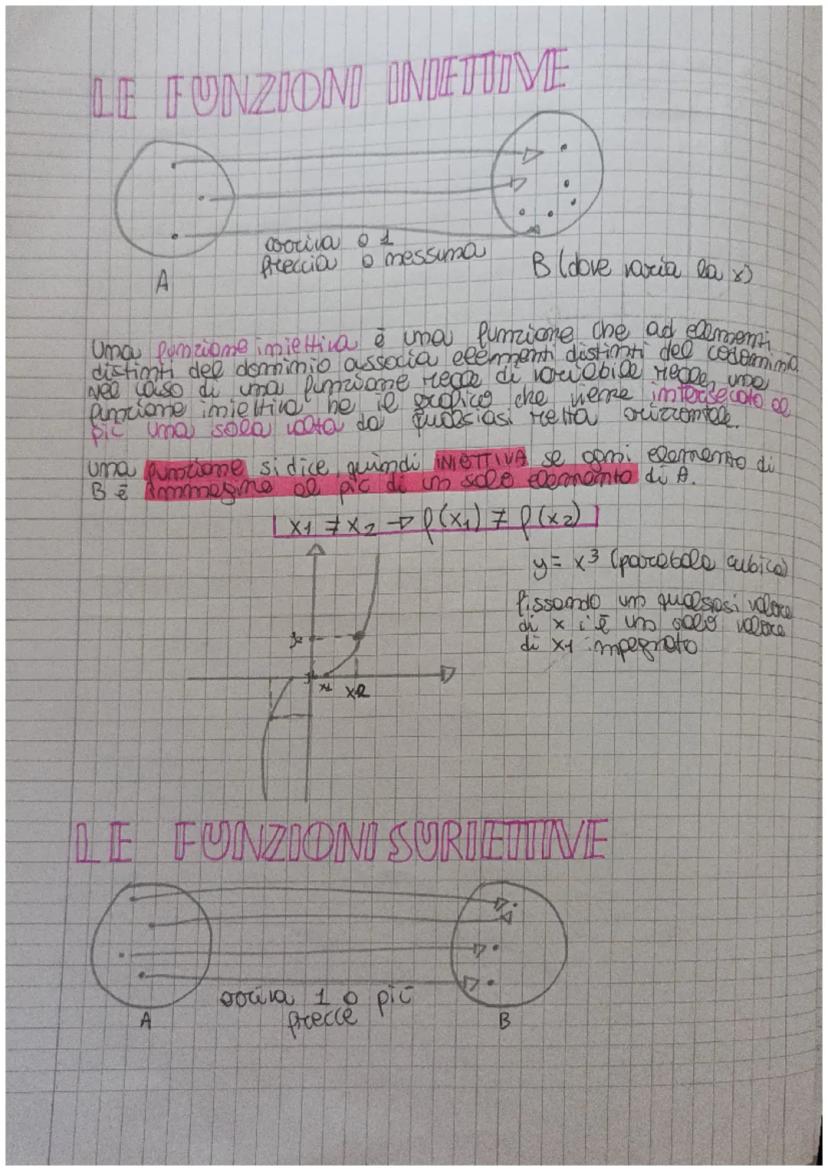 LE FUNZIONI INIETTIVE
arriva o 1
freccia o nessuna
A
B (dove varia la x)
Una funzione iniettiva è una funzione che ad elementi
distinti del dominio associa elementi distinti del codominio
nel caso di una funzione reale di variabile reale, una
funzione iniettiva ha il grafico che viene intersecato al
più una sola volta da qualsiasi retta orizzontale.
una funzione si dice quindi INIETTIVA se ogni elemento di
B è immagine al più di un solo elemento di A.
x1 ≠ x2 → f(x1) ≠ f(x2)
y = x³ (parabola cubica)
fissando un qualsiasi valore
di x c'è un solo valore
di x1 impegnato
x1 x2
LE FUNZIONI SURIETTIVE
arriva 1 o più
frecce
A
B